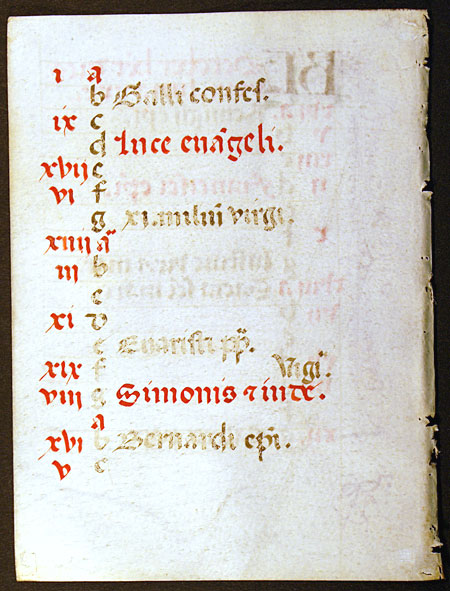 i a
b Galli confes.
ix c
d Luce euāgeli.
xvij e
vi f
g xi. miliū virgi.
xiiij a
iii b
c
xi d
e Euaristi pp̄.
xix f Vigi.
viii g Simonis ⁊ iude.
a
xvi b Bernardi ep̄i.
v c